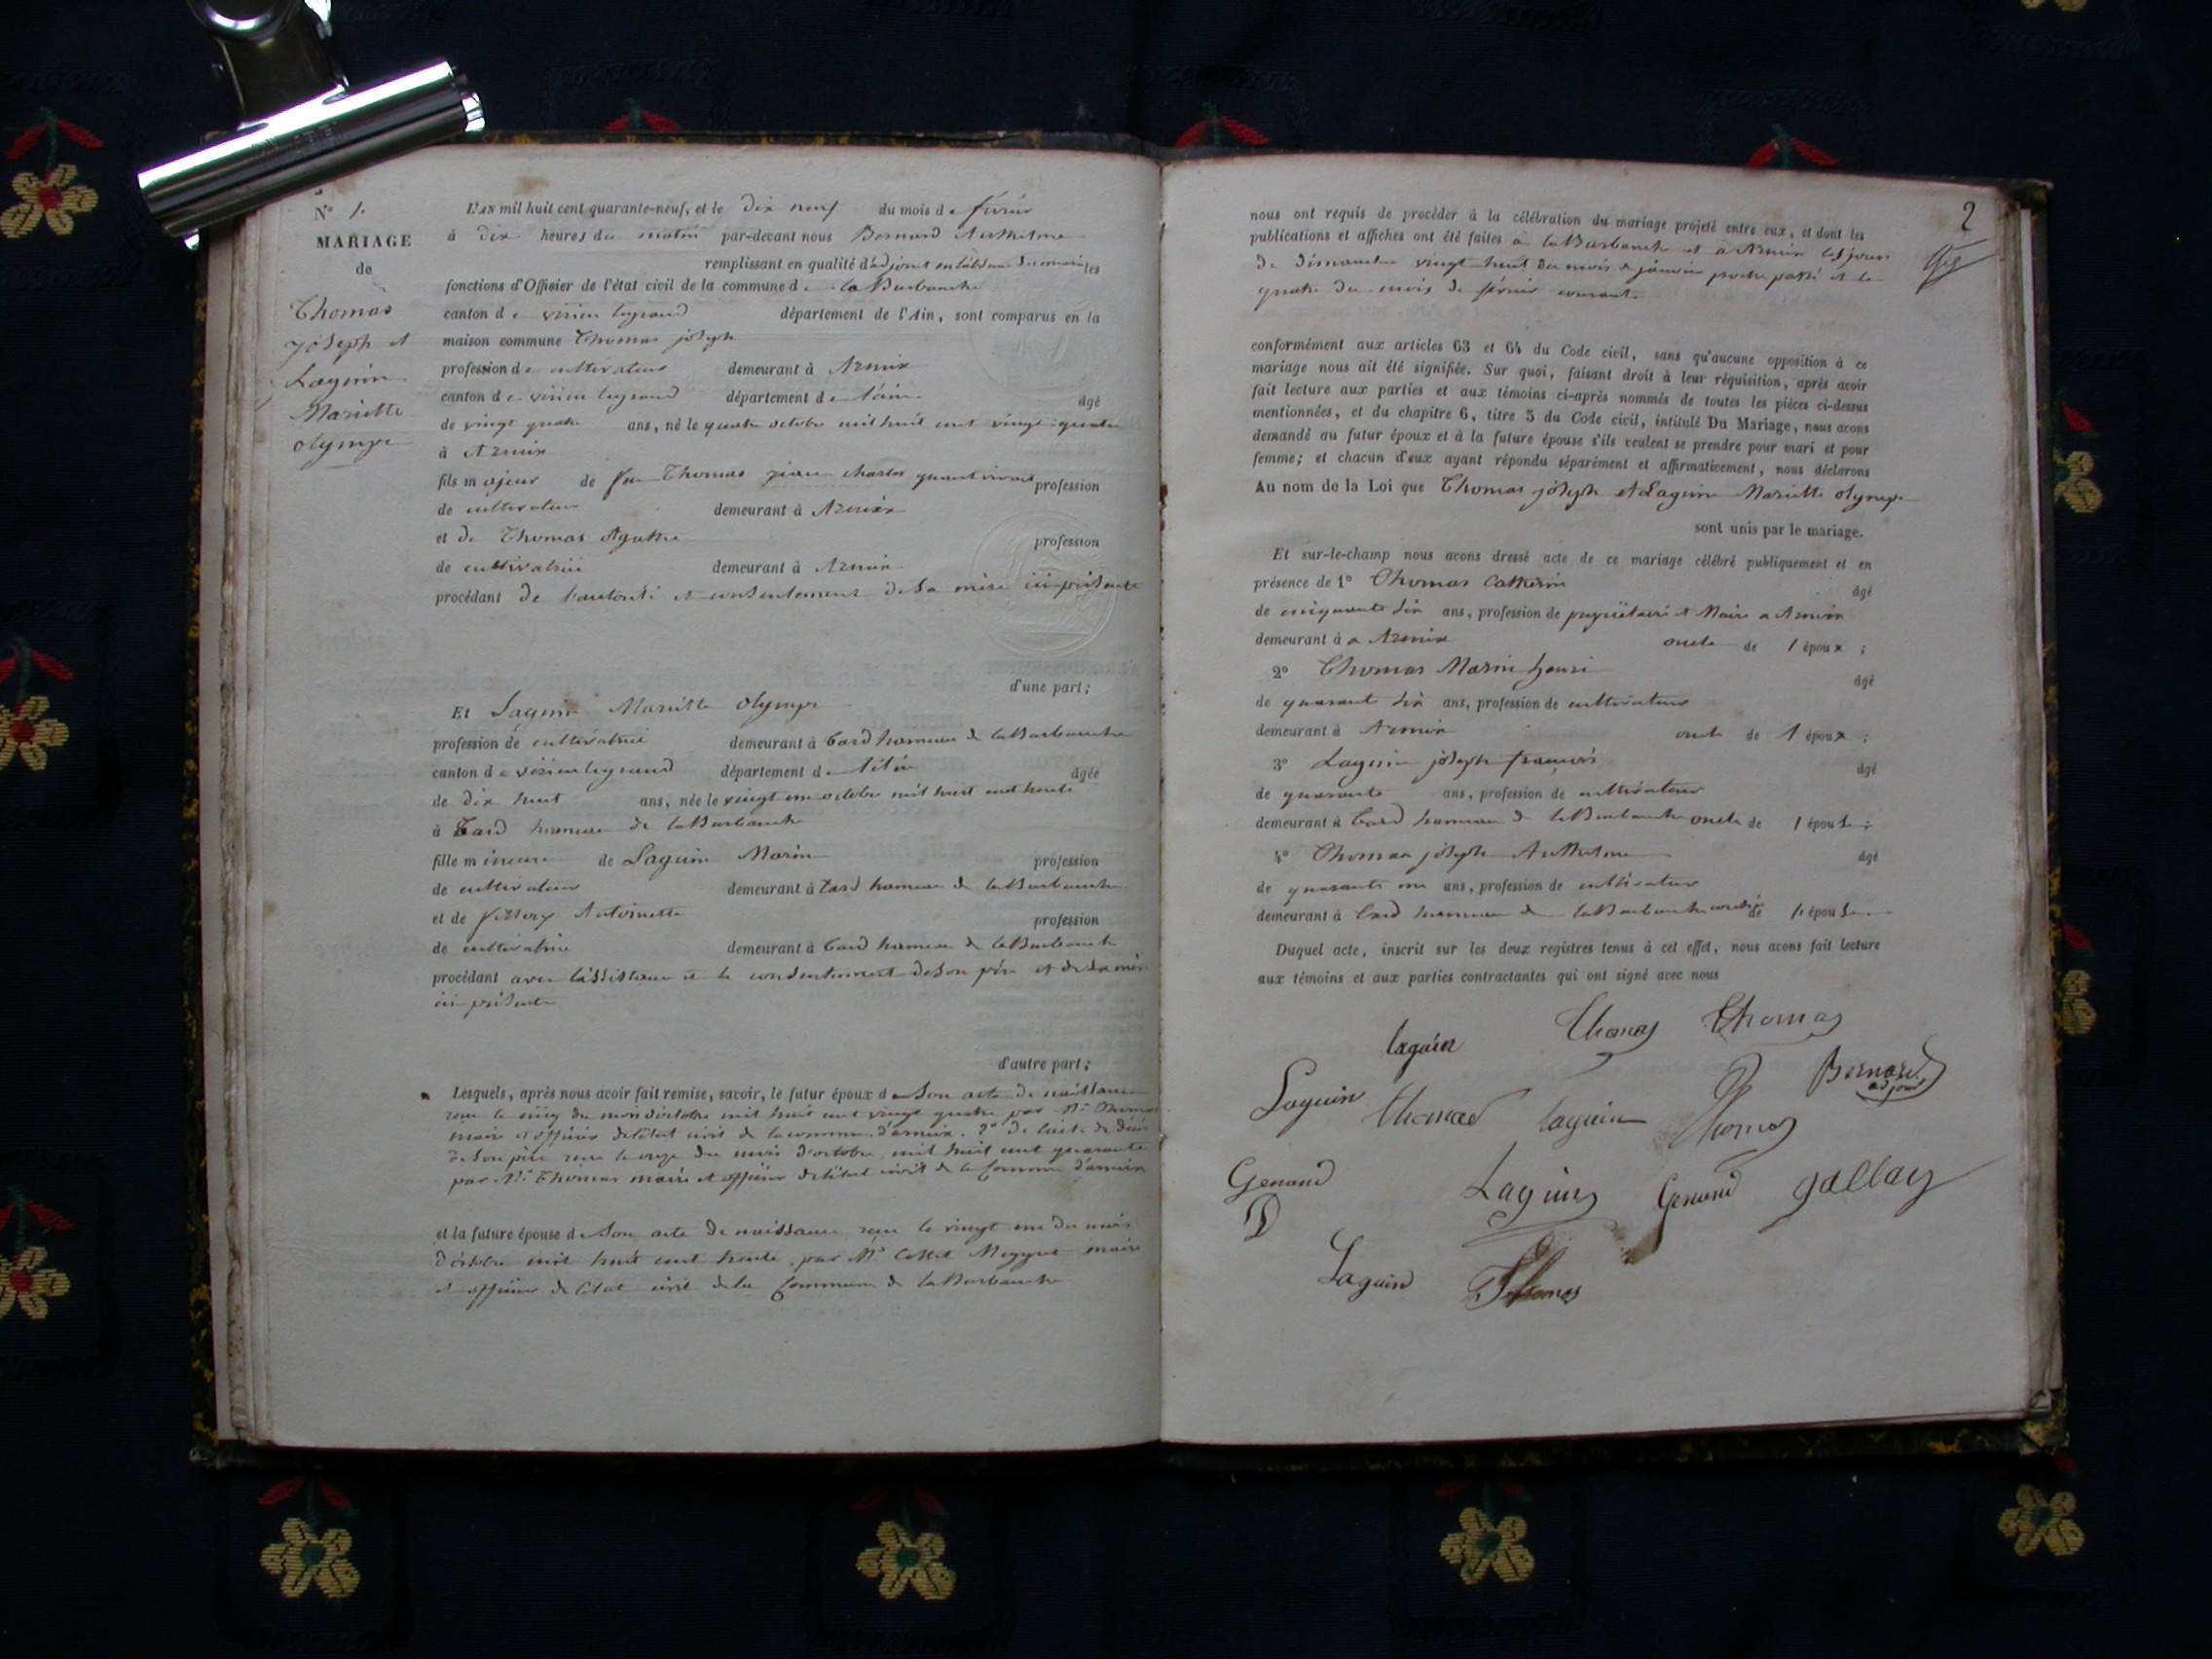 N° 1.
MARIAGE
de
Thomas
joseph et
Laguin
Mariette
olympe
L'AN mil huit cent quarante-neuf, et le dix neuf du mois de fevrier
à dix heures du matin par-devant nous Bernard Anthelme
remplissant en qualité d'adjoint en labsence du maire les
fonctions d'Officier de l'état civil de la commune de la Burbanche
canton de virieu legrand département de l'Ain, sont comparus en la
maison commune Thomas joseph
profession de cultivateur demeurant à Armix
canton de virieu legrand département de l'ain âgé
de vingt quatre ans, né le quatre octobre mil huit cent vingt quatre
à Armix
fils majeur de feu Thomas jean charles quant vivait profession
de cultivateur demeurant à Armix
et de Thomas Agathe profession
de cultivatrice demeurant à Armix
procédant de l'autorité et consentement de sa mère ici présente
d'une part;
Et Laguin Mariette olympe
profession de cultivatrice demeurant à Tard hameau de la Burbanche
canton de virieu legrand département de l'ain âgée
de dix huit ans, née le vingt un octobre mil huit cent trente
à Tard hameau de la Burbanche
fille mineure de Laguin Marin profession
de cultivateur demeurant à Tard hameau de la Burbanche
et de Antoinette profession
de cultivatrice demeurant à Tard hameau de la Burbanche
procédant avec l'assistance et le consentement de son père et de sa mère
ici présents
d'autre part;
Lesquels, après nous avoir fait remise, savoir, le futur époux de son acte de naissance
recu le cinq du mois d'octobre mil huit cent vingt quatre par Mr Thomas
maire et officier de l'état civil de la commune d'armix. 2° de l'acte de décès
de son père recu le onze du mois d'octobre mil huit cent quarante
par Mr Thomas maire et officier de l'état civil de la commune d'armix
et la future épouse de son acte de naissance recu le vingt un du mois
d'octobre mil huit cent trente, par Mr maire
et officier de l'état civil de la Commune de la Burbanche
2
nous ont requis de procéder à la célébration du mariage projeté entre eux, et dont les
publications et affiches ont été faites à la Burbanche et à Armix les jours
de dimanche vingt huit du mois de janvier proche passé et le
quatre du mois de février courant
conformément aux articles 63 et 64 du Code civil, sans qu'aucune opposition à ce
mariage nous ait été signifiée. Sur quoi, faisant droit à leur réquisition, après avoir
fait lecture aux parties et aux témoins ci-après nommés de toutes les pièces ci-dessus
mentionnées, et du chapitre 6, titre 5 du Code civil, intitulé Du Mariage, nous avons
demandé au futur époux et à la future épouse s'ils veulent se prendre pour mari et pour
femme; et chacun d'eux ayant répondu séparément et affirmativement, nous déclarons
Au nom de la Loi que Thomas joseph et Laguin Mariette olympe
sont unis par le mariage.
Et sur-le-champ nous avons dressé acte de ce mariage célébré publiquement et en
présence de 1° Thomas Catherin âgé
de cinquante six ans, profession de propriétaire et Maire a Armix
demeurant à a Armix oncle de l'époux;
2° Thomas Marin henri âgé
de quarant six ans, profession de cultivateur
demeurant à Armix oncle de l'époux;
3° Laguin joseph françois âgé
de quarante ans, profession de cultivateur
demeurant à Tard hameau de la Burbanche oncle de l'épouse;
4° Thomas joseph Anthelme âgé
de quarante un ans, profession de cultivateur
demeurant à Tard hameau de la Burbanche de l'épouse
Duquel acte, inscrit sur les deux registres tenus à cet effet, nous avons fait lecture
aux témoins et aux parties contractantes qui ont signé avec nous
laguin Thomas Thomas
Laguin thomas laguin Thomas Bernard
adjoint
Genand Laguin Genand gallay
D
Laguin Thomas